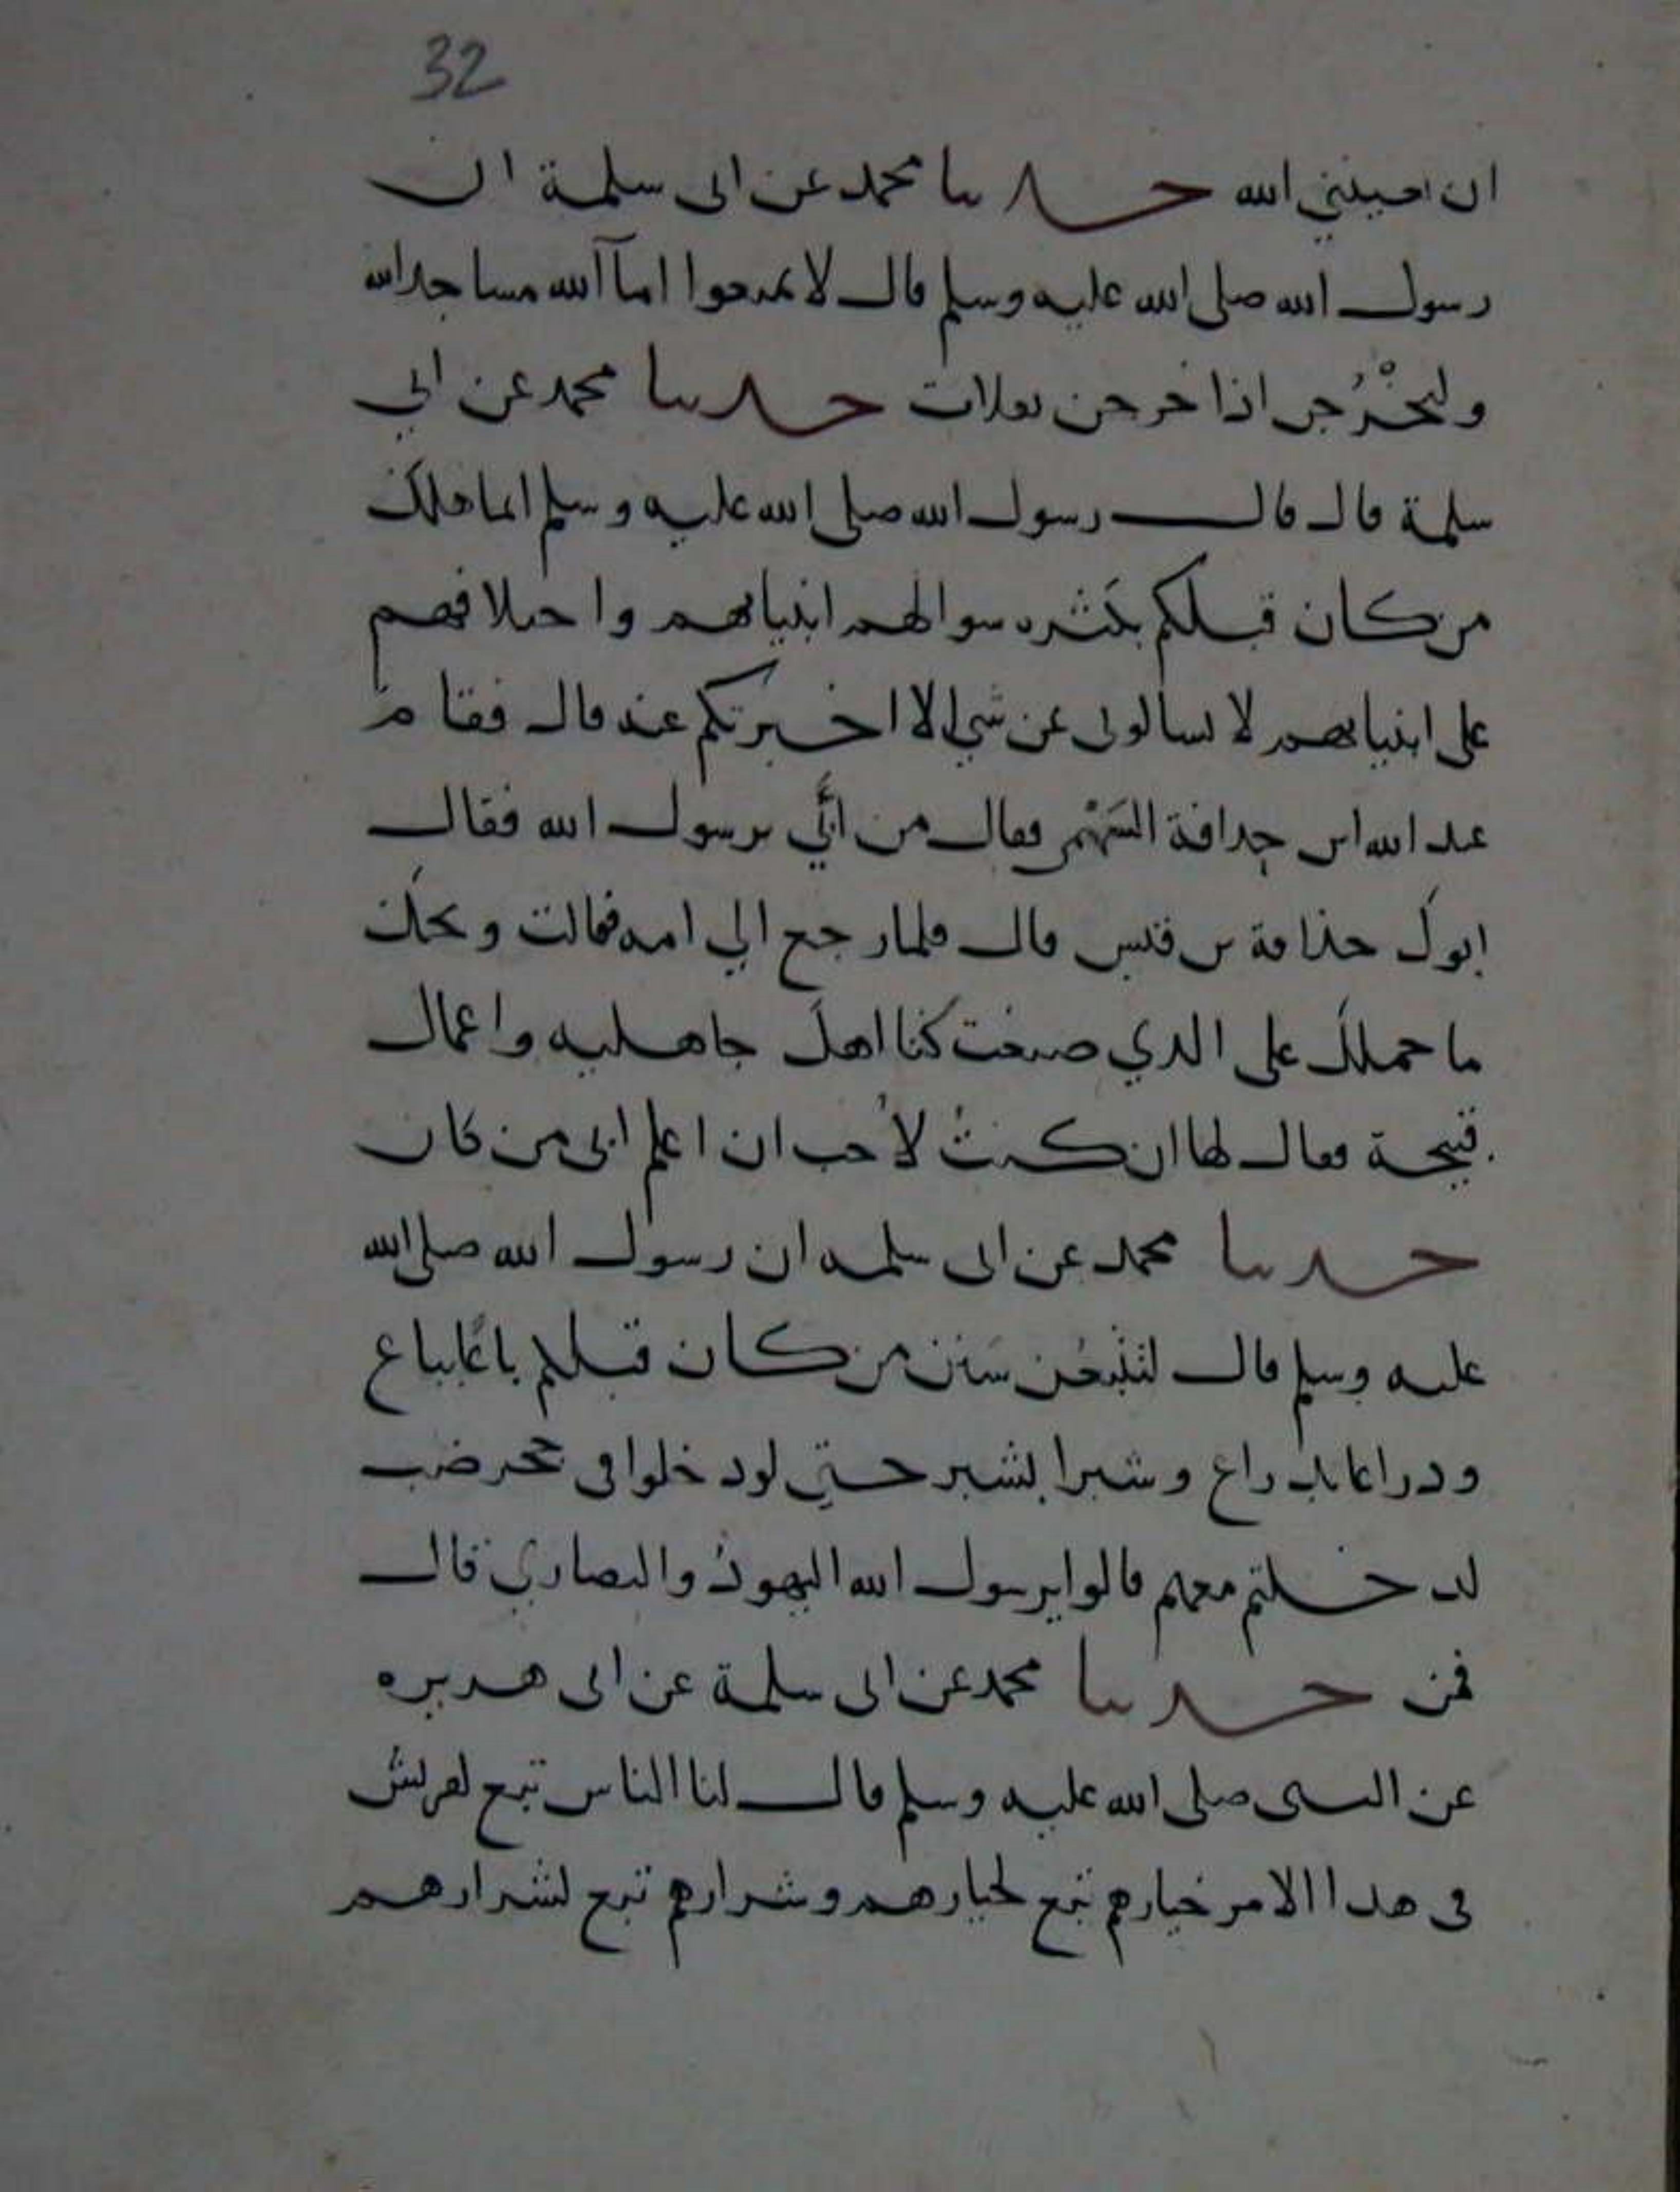 32
ان احييتني الله حدثنا محمد عن ابى سلمة ان
رسول الله صلى الله عليه وسلم قال لا تمنعوا اماآ الله مساجد الله
وليَخْرُجن اذا خرجن تفلات حدثنا محمد عن ابي
سلمة قال قال رسول الله صلى الله عليه وسلم انما هلك
من كان قبلكم بكثره سوالهم انبياهم واختلافهم
على انبياهم لا تسالونى عن شي الا اخبرتكم عنه قال فقام
عبد الله ابن حذافة السَهْمى فقال من اَبي يرسول الله فقال
ابوك حذافة بن قيس قال فلما رجع الي امه فقالت ويحك
ما حملك على الذي صنعت كنا اهل جاهليه واعمال
قبيحة فقال لها ان كنتُ لأُحب ان اعلم ابى من كان
حدثنا محمد عن ابى سلمه ان رسول الله صلى الله
عليه وسلم قال لتتبعُن سَنن من كان قبلكم باعًا بباع
وذراعا بذراع وشبرا بشبر حتي لو دخلوا فى جحر ضب
لدخلتم معهم قالوا يرسول الله اليهودُ والنصاري قال
فمن حدثنا محمد عن ابى سلمة عن ابى هريره
عن النبى صلى الله عليه وسلم قال لنا الناس تبع لقريش
فى هذا الامر خيارهم تبع لخيارهم وشرارهم تبع لشرارهم